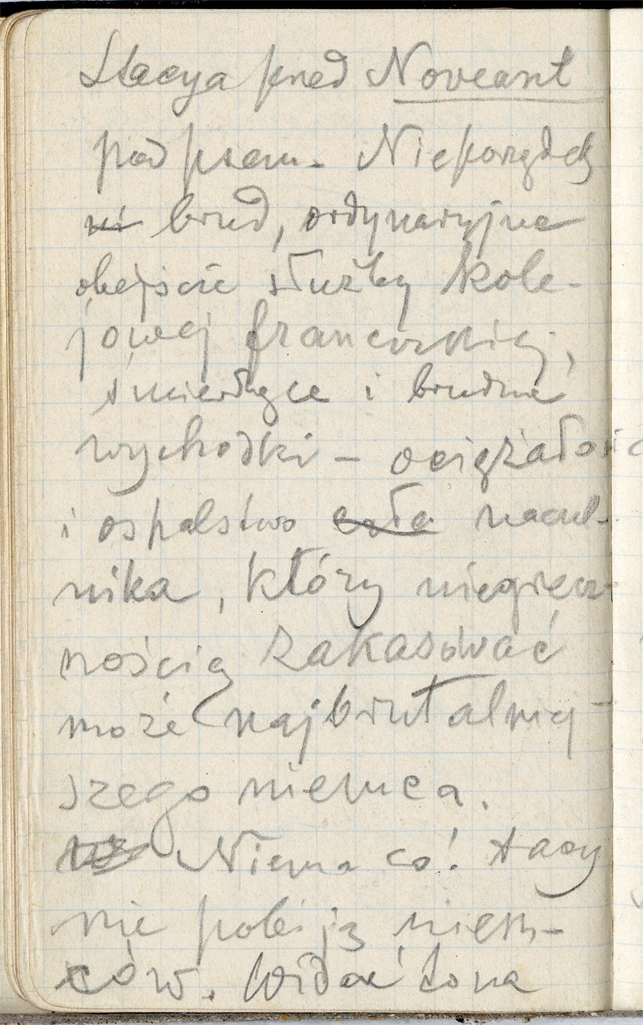 Stacya przed Noveant
pod psem. Nieporządek
brud, ordynaryjne
obejście służby kole-
jowej francuskiej,
śmierdzące i brudne
wychodki – ociężałość
i ospalstwo naczel-
nika, który niegrzecz-
nością zakasować
może najbrutalniej-
szego niemca.
Niema co! tacy
nie pobiją niem-
ców. Widać to na